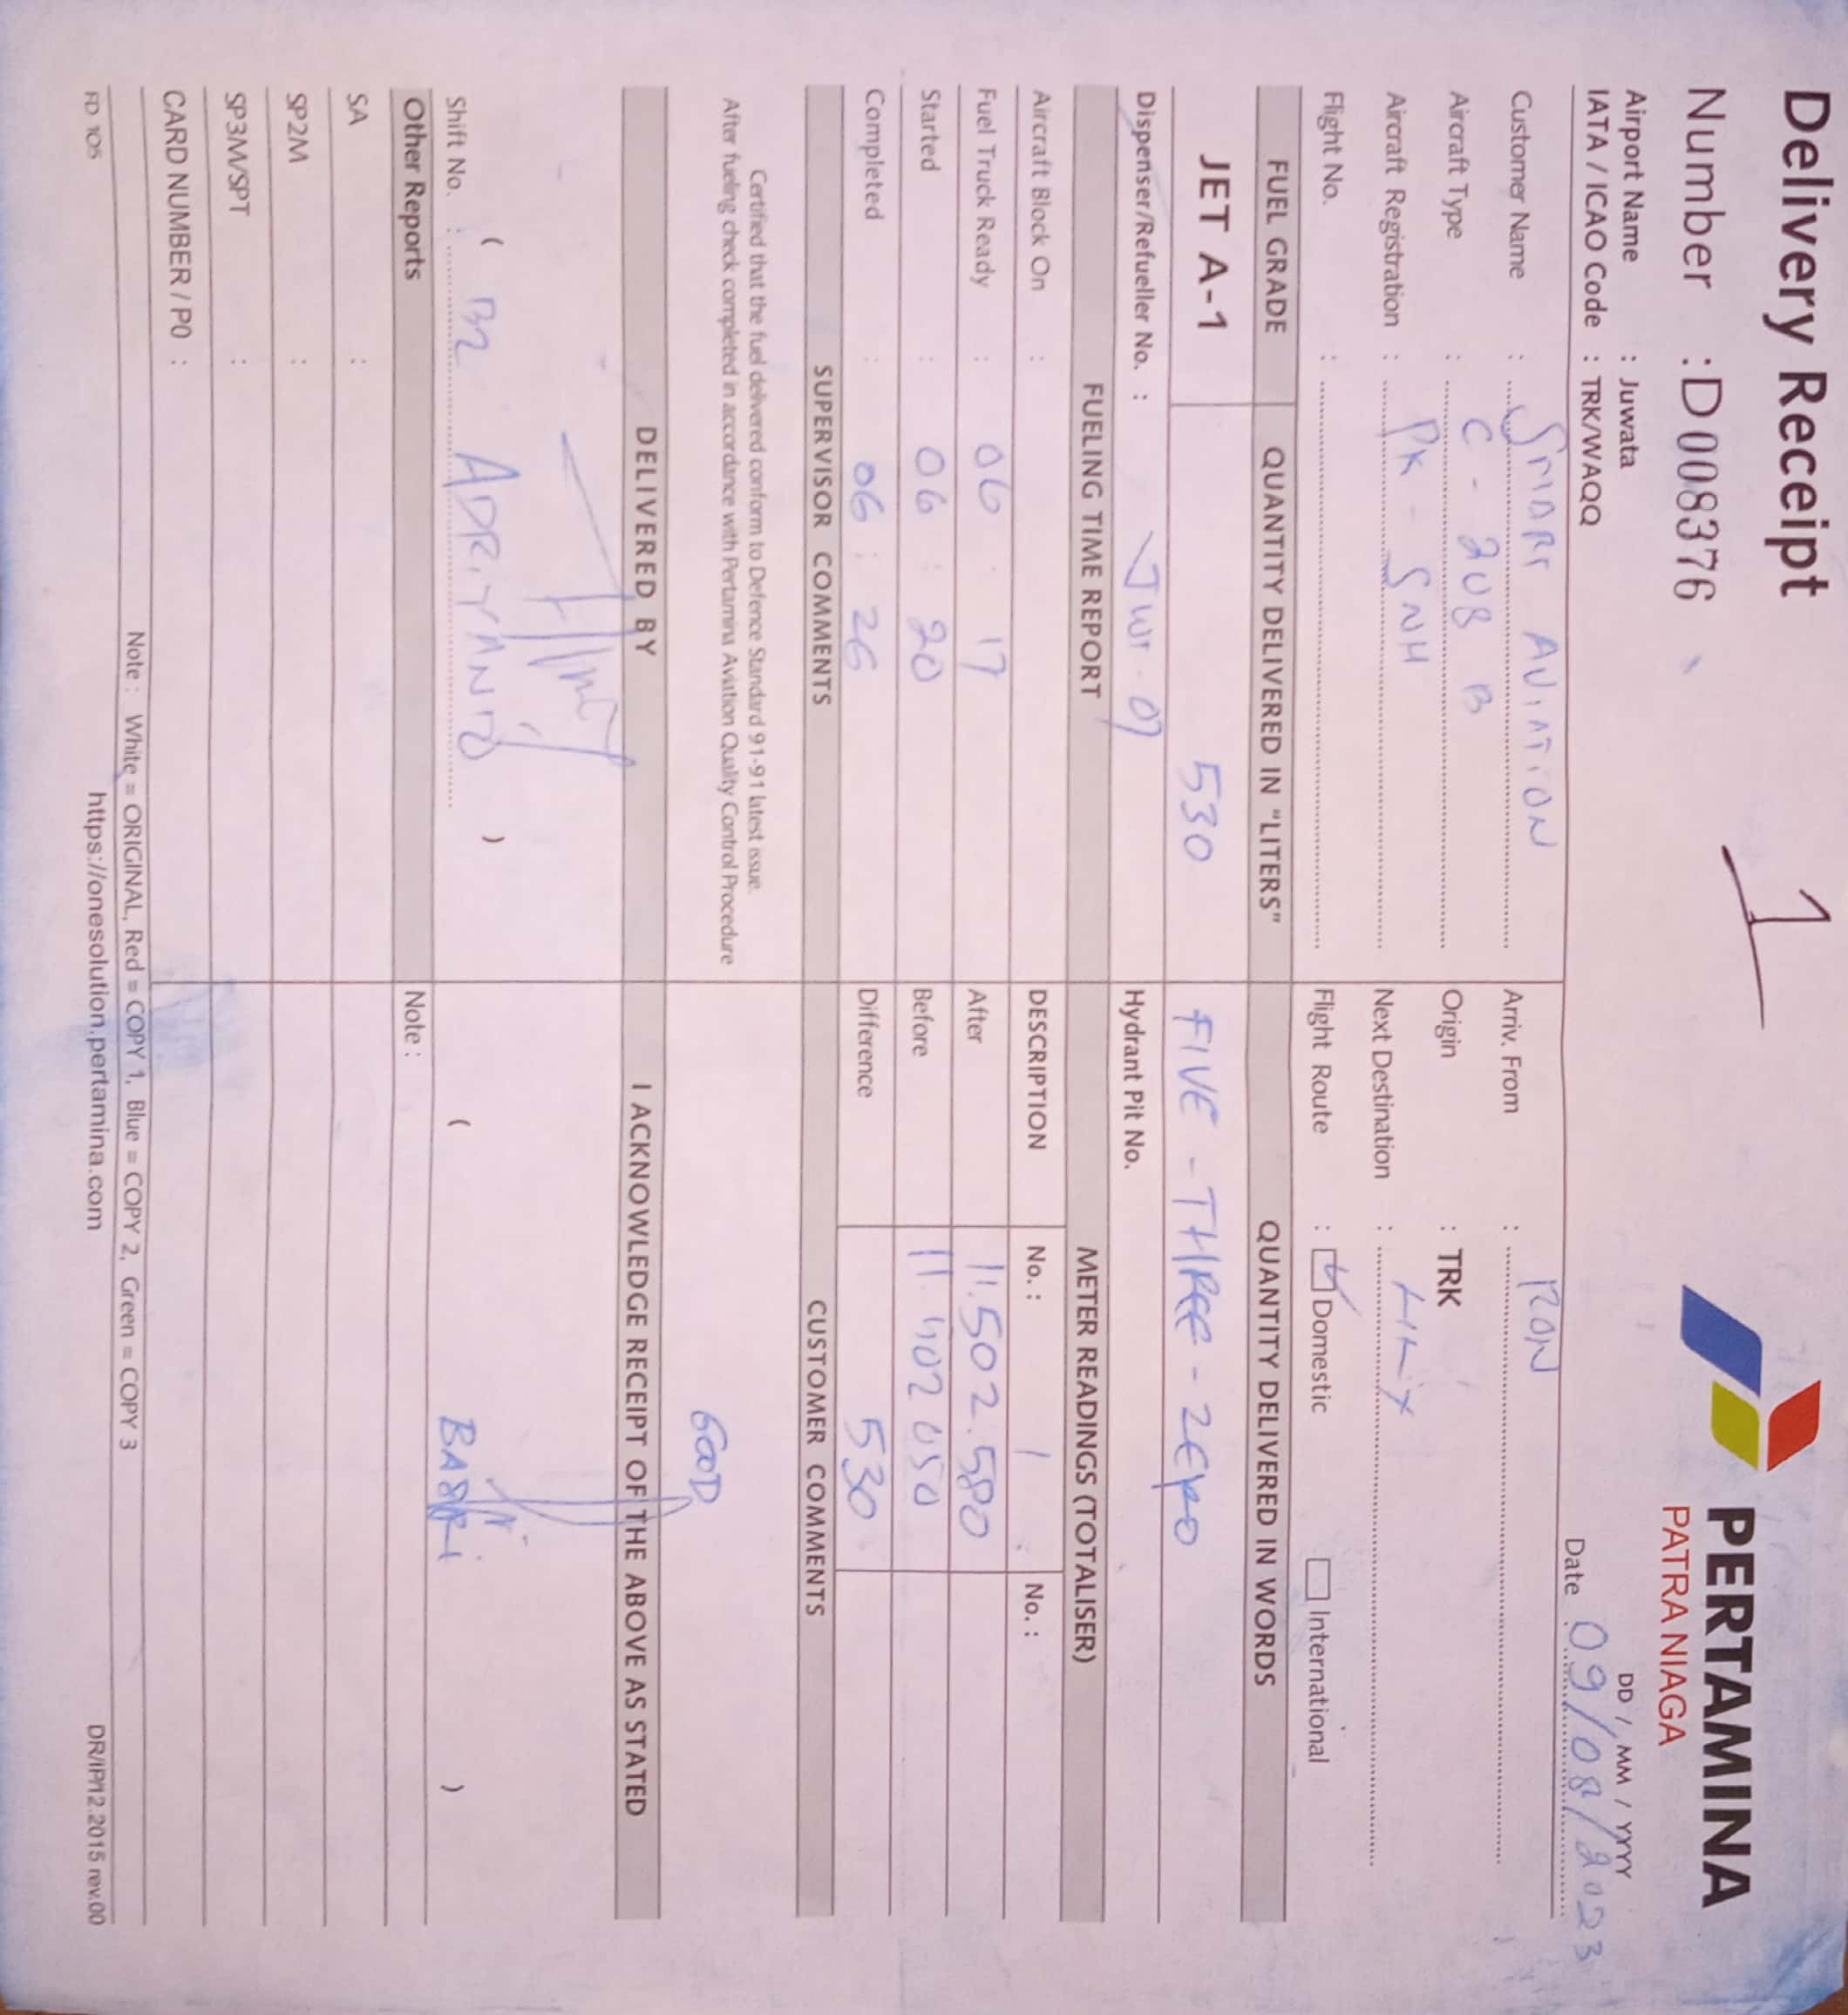 Delivery Receipt
1
PERTAMINA
PATRA NIAGA
Number : D 0083376
Airport Name : Juwata
DD / MM / YYYY
IATA / ICAO Code : TRK/WAQQ
Date : 09/08/2023
Customer Name : SMART AVIATION
Arriv. From : RON
Aircraft Type : C - 208 B
Origin : TRK
Aircraft Registration : PK - SNH
Next Destination :
Flight No. :
Flight Route : Domestic International
FUEL GRADE QUANTITY DELIVERED IN "LITERS" QUANTITY DELIVERED IN WORDS
JET A-1 530 FIVE - THREE - ZERO
Dispenser/Refueller No. : JWT . 07 Hydrant Pit No.
FUELING TIME REPORT METER READINGS (TOTALISER)
Aircraft Block On : DESCRIPTION No. : 1 No. :
Fuel Truck Ready : 06 : 17 After 11.502.580
Started : 06 : 20 Before 11.502 050
Completed : 06 : 26 Difference 530
SUPERVISOR COMMENTS CUSTOMER COMMENTS
Certified that the fuel delivered conform to Defence Standard 91-91 latest issue.
After fueling check completed in accordance with Pertamina Aviation Quality Control Procedure
GOOD
DELIVERED BY I ACKNOWLEDGE RECEIPT OF THE ABOVE AS STATED
( ADRIYANTO ) ( BASRI )
Shift No. :
Other Reports Note :
SA :
SP2M :
SP3M/SPT :
CARD NUMBER / P0 :
Note : White = ORIGINAL, Red = COPY 1, Blue = COPY 2, Green = COPY 3
FD 105 https://onesolution.pertamina.com DR/IP/12.2015 rev.00